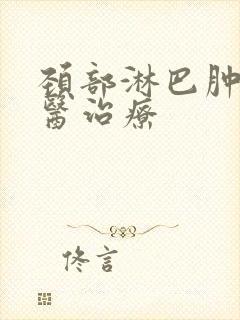 頚部淋巴肿
醫治療
佟言